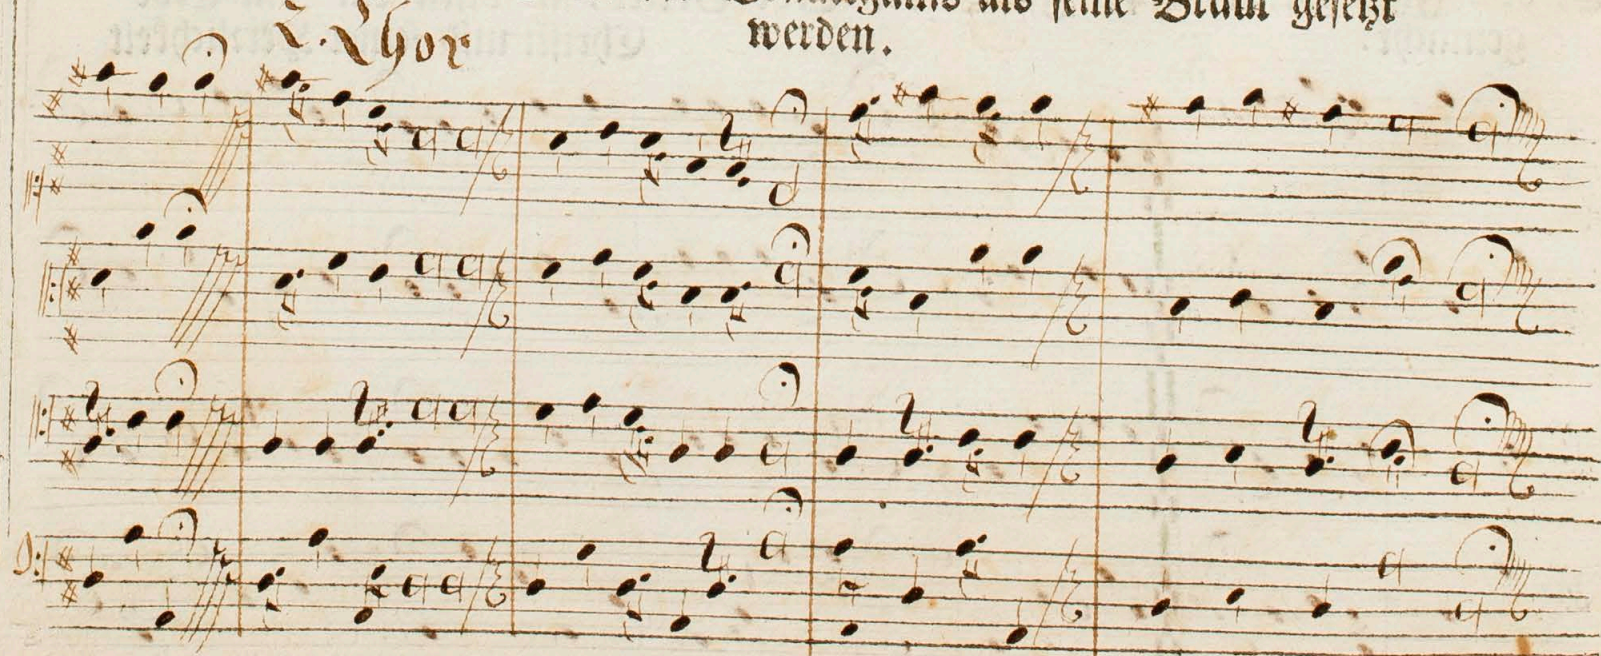 als seine Braut gesetzt
werden.
2. Chor